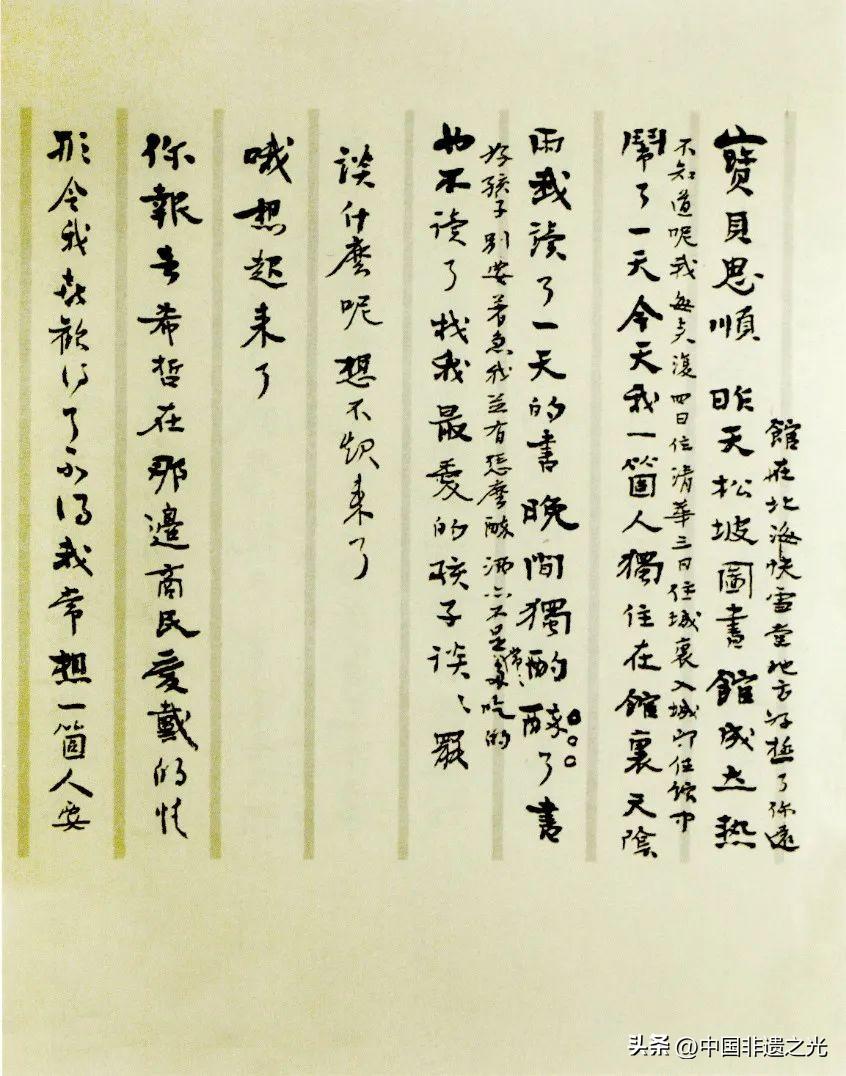 館在北海快雪堂地方好極了你還
寶貝思順 昨天松坡圖書館成立熱
不知道呢我每来復四日住清華三日住城裏入城即住館中
鬧了一天今天我一箇人獨住在館裏天陰
雨我讀了一天的書晚間獨酌醉了書
好孩子別要著急我並有怎麼醉酒亦不是常〻多吃的
也不讀了找我最愛的孩子談〻罷
談什麼呢想不起來了
哦想起來了
你報告希哲在那邊商民愛戴的情
形令我喜歡得了不得我常想一箇人要
头条 @中国非遗之光